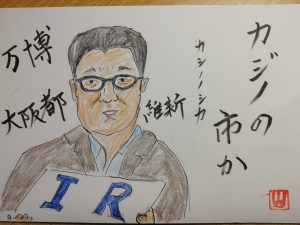 カジノの
市か
カシノシカ
万博
大阪都
維新
IR